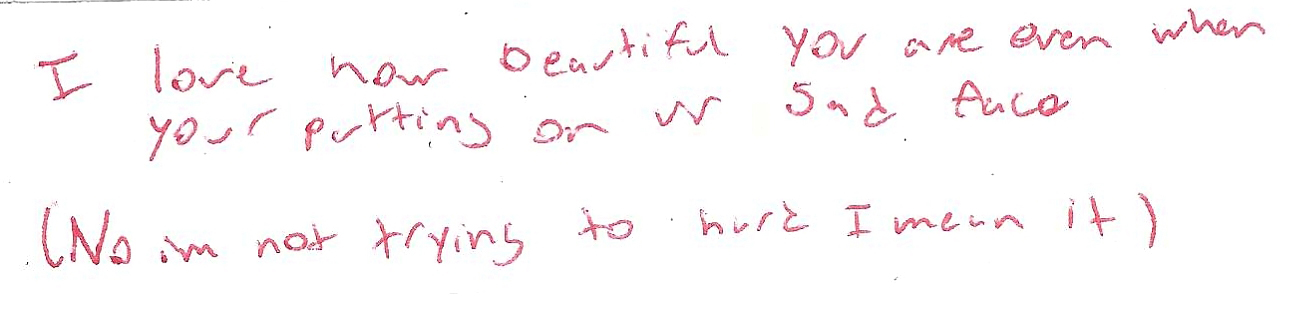 I love how beautiful you are even when
your putting on a sad face
(No im not trying to hurt I mean it)